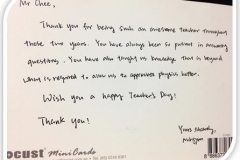 Mr Chee,
Thank you for being such an awesome teacher throughout
these two years. You have always been so patient in answering
questions. You have also taught us knowledge that is beyond
what is required to allow us to appreciate physics better.
Wish you a happy Teacher's Day!
Thank you!
Yours Sincerely,
ocust MiniCards